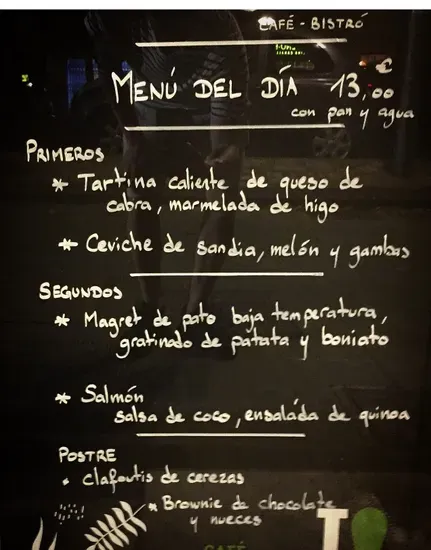 CAFÉ - BISTRÓ
MENÚ DEL DÍA 13,00 €
con pan y agua
PRIMEROS
* Tartina caliente de queso de
cabra, marmelada de higo
* Ceviche de sandia, melón y gambas
SEGUNDOS
* Magret de pato baja temperatura,
gratinado de patata y boniato
* Salmón
salsa de coco, ensalada de quinoa
POSTRE
• Clafoutis de cerezas
* Brownie de chocolate
y nueces
CAFÉ